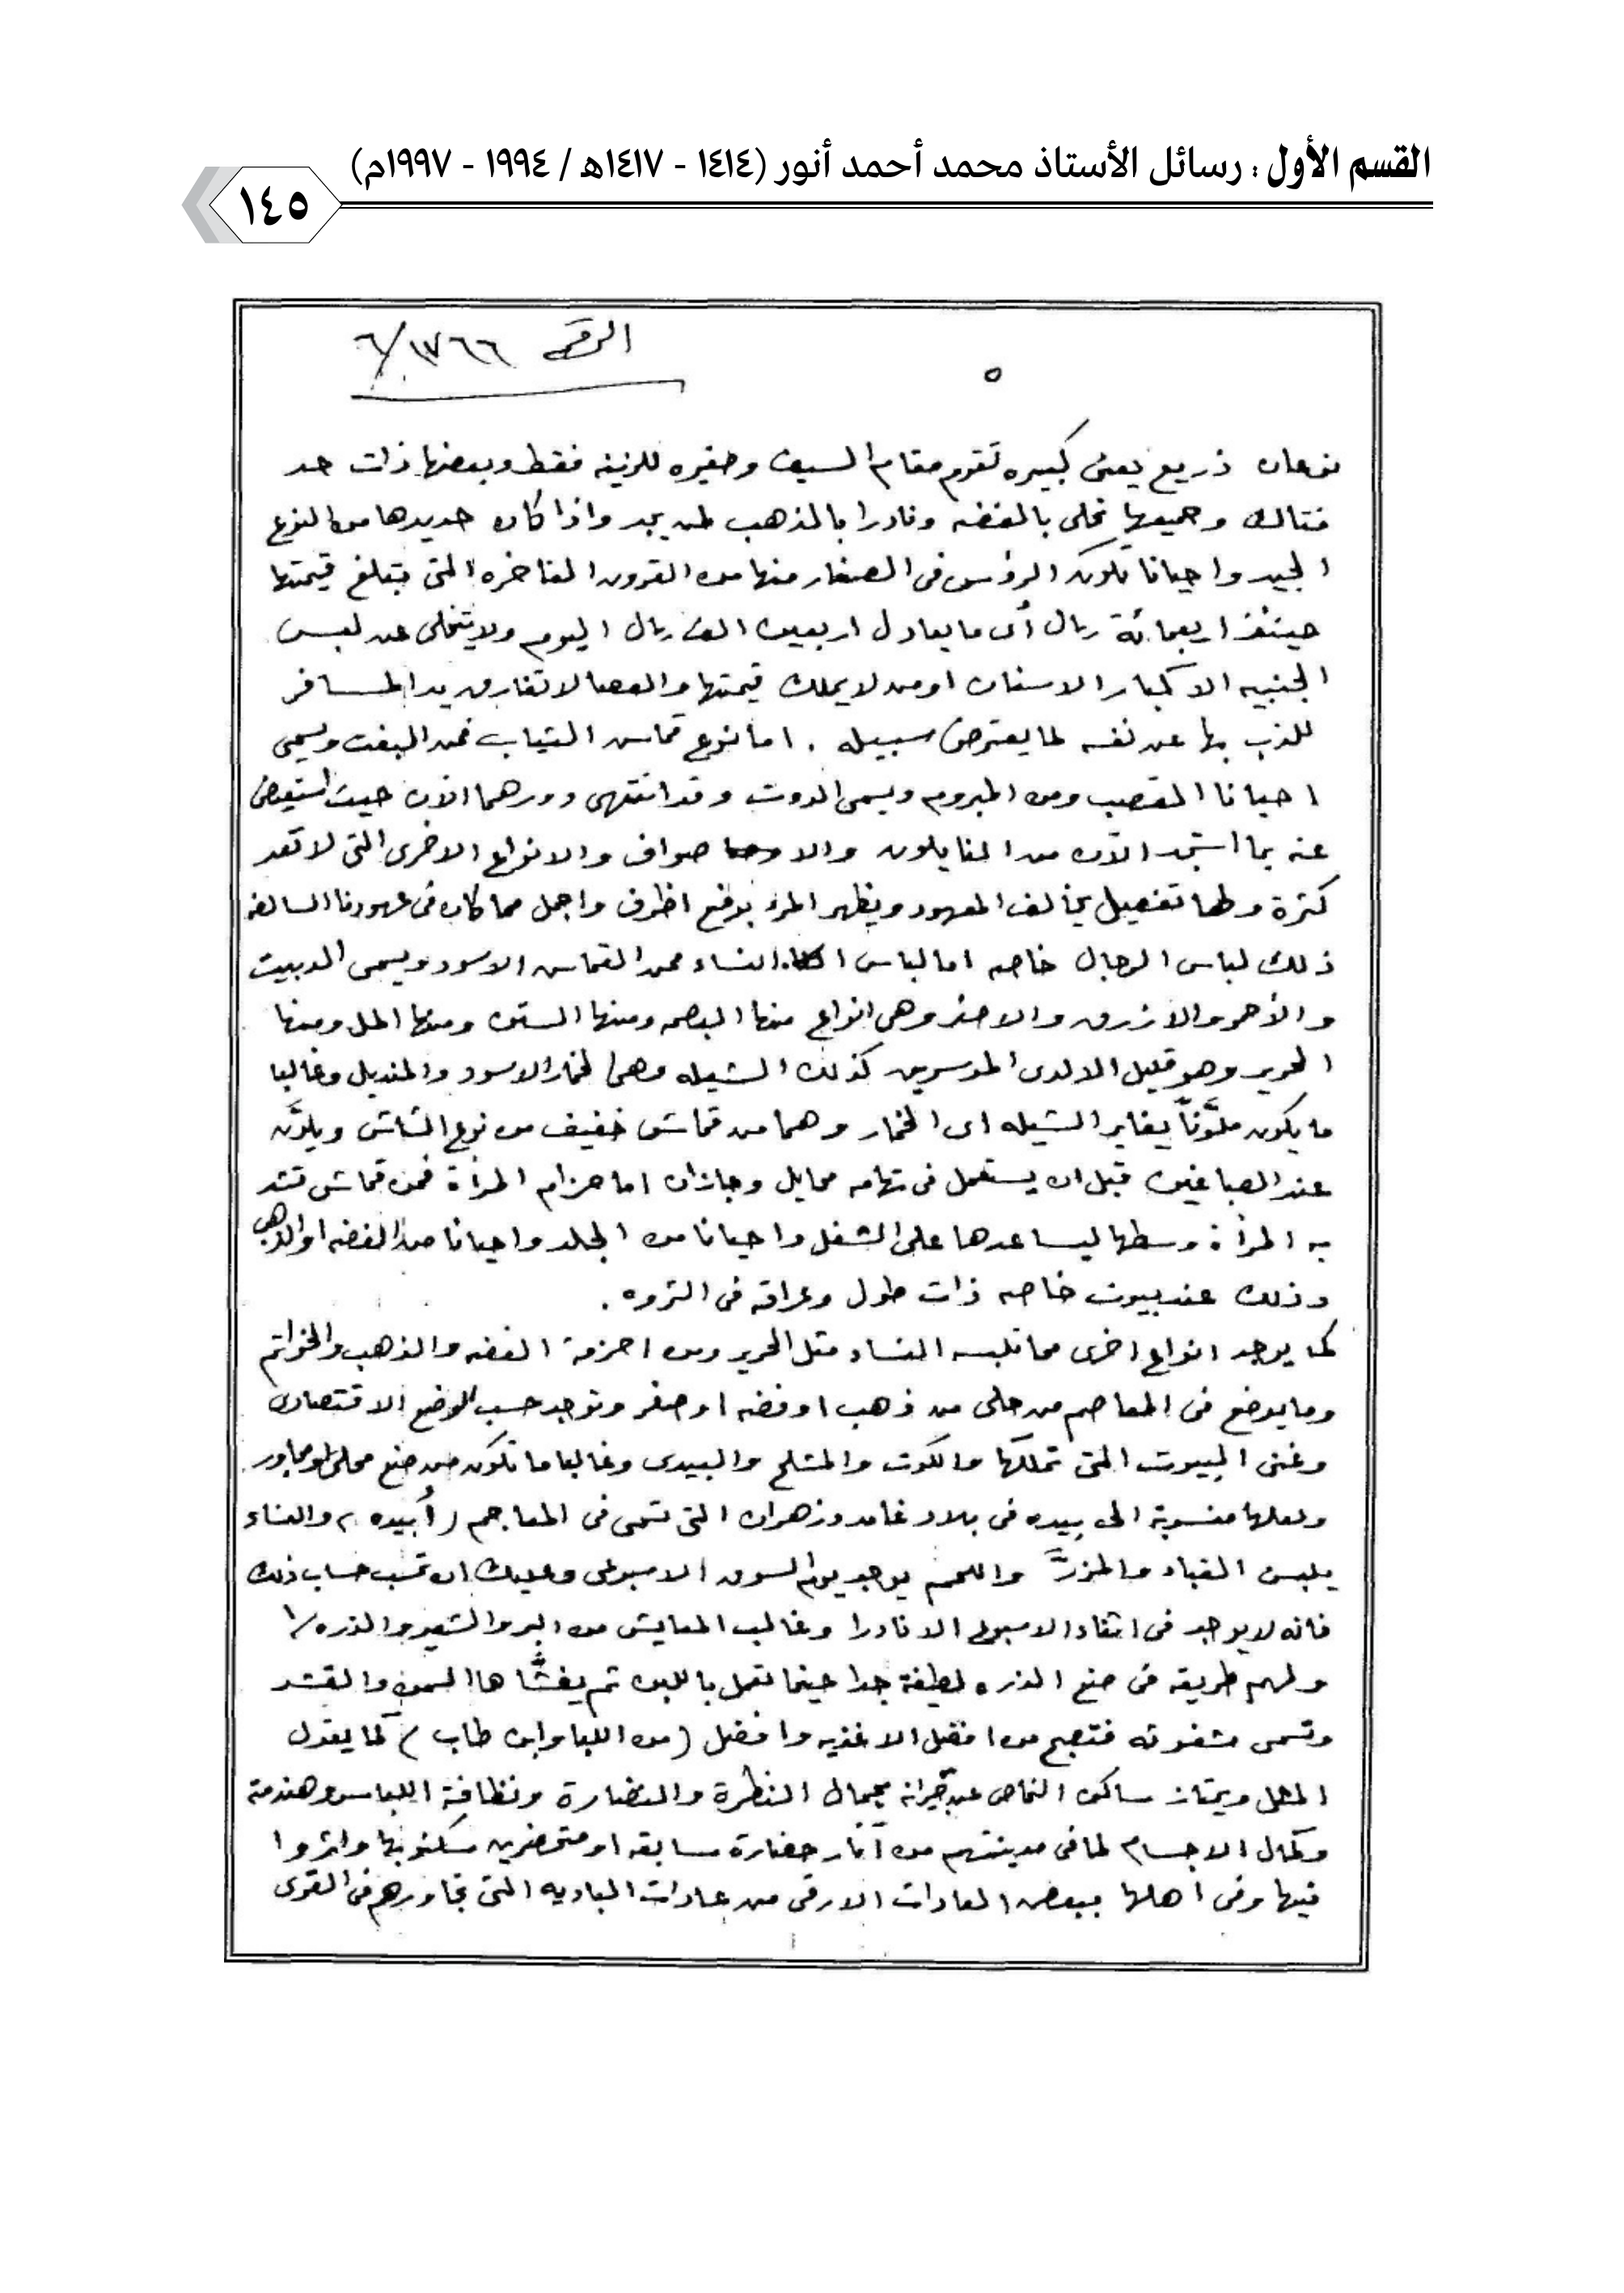 القسم الأول : رسائل الأستاذ محمد أحمد أنور (١٤١٤ - ١٤١٧هـ / ١٩٩٤ - ١٩٩٧م)
١٤٥
الرقم ١٧٦٦/٦
٥
نوعان ذريع يعنى كبيره تقوم مقام السيف وصغيره للزينه فقط وبعضها ذات حد
فتاك وجميعها تحلى بالفضه ونادرا بالذهب لمن يجد واذا كان حديدها من النوع
الجيد واحيانا تكون الرؤس فى الصغار منها من القرون الفاخره التى تبلغ قيمتها
حينئذ اربعمائة ريال أى ما يعادل اربعين الف ريال اليوم ولا يتخلى عن لبس
الجنبيه الا كبار الاسنان او من لا يملك قيمتها والعصا لا تفارق يد المسافر
للذب بها عن نفسه لما يعترض سبيله . اما نوع قماش الثياب فمن البفت ويسمى
احيانا المقصب ومن المبروم ويسمى الدوت وقد انتهى دورهما الآن حيث استعيض
عنه بما استجد الآن من النايلون والا صواف والانواع الاخرى التى لا تعد
كثرة ولها تفصيل يخالف المعهود ويظهر المرء بوضع اظرف واجمل مما كان فى عهودنا السالفه
ذلك لباس الرجال خاصه اما لباس النساء فمن القماش الاسود ويسمى الدبيت
والأحمر والازرق والاخضر وهى انواع منها البصمه ومنها الستن ومنها المل ومنها
الحرير وهو قليل الا لدى الموسرين كذلك الشيله وهى الخمار الاسود والمنديل وغالبا
ما يكون ملوّناً يغاير الشيله اى الخمار وهما من قماش خفيف من نوع الشاش ويلوّن
عند الصباغين قبل ان يستعمل فى تهامه محايل وجازان اما حزام المرأة فمن قماش تشد
به المرأة وسطها ليساعدها على الشغل واحيانا من الجلد واحيانا من الفضه او الذهب
وذلك عند بيوت خاصه ذات طول وعراقه فى الثروه .
كما يوجد انواع اخرى مما تلبسه النساء مثل الحرير ومن احزمة الفضه والذهب والخواتم
وما يوضع فى المعاصم من حلى من ذهب او فضه او صفر وتوجد حسب الوضع الاقتصادى
وغنى البيوت التى تملكها والكوت والمشلح والبيدى وغالبا ما تكون من صنع محلى او مجاور
ولعلها منسوبة الى بيده فى بلاد غامد وزهران التى تسمى فى المعاجم (أبيده) والنساء
يلبسن القباء والمزرّ واللحم يوجد يوم السوق الاسبوعى وعليك ان تحسب حساب ذلك
فانه لا يوجد فى اثناء الاسبوع الا نادرا وغالب المعايش من البر والشعير والذره
ولهم طريقه فى صنع الذره لطيفة جدا حينما تعمل باللبن ثم يغشّاها السمن والقشد
وتسمى مشغوثه فتصبح من افضل الاغذيه وافضل (من اللبا وابن طاب) كما يقول
المثل ويمتاز ساكن النماص عن جيرانه بجمال النظرة والنضارة ونظافة اللباس وهندمة
وكمال الاجسام لما فى مدينتهم من آثار حضارة سابقه او متحضرين سكنوا بها واثروا
فيها وفى اهلها ببعض العادات الارقى من عادات الباديه التى تجاورهم فى القرى